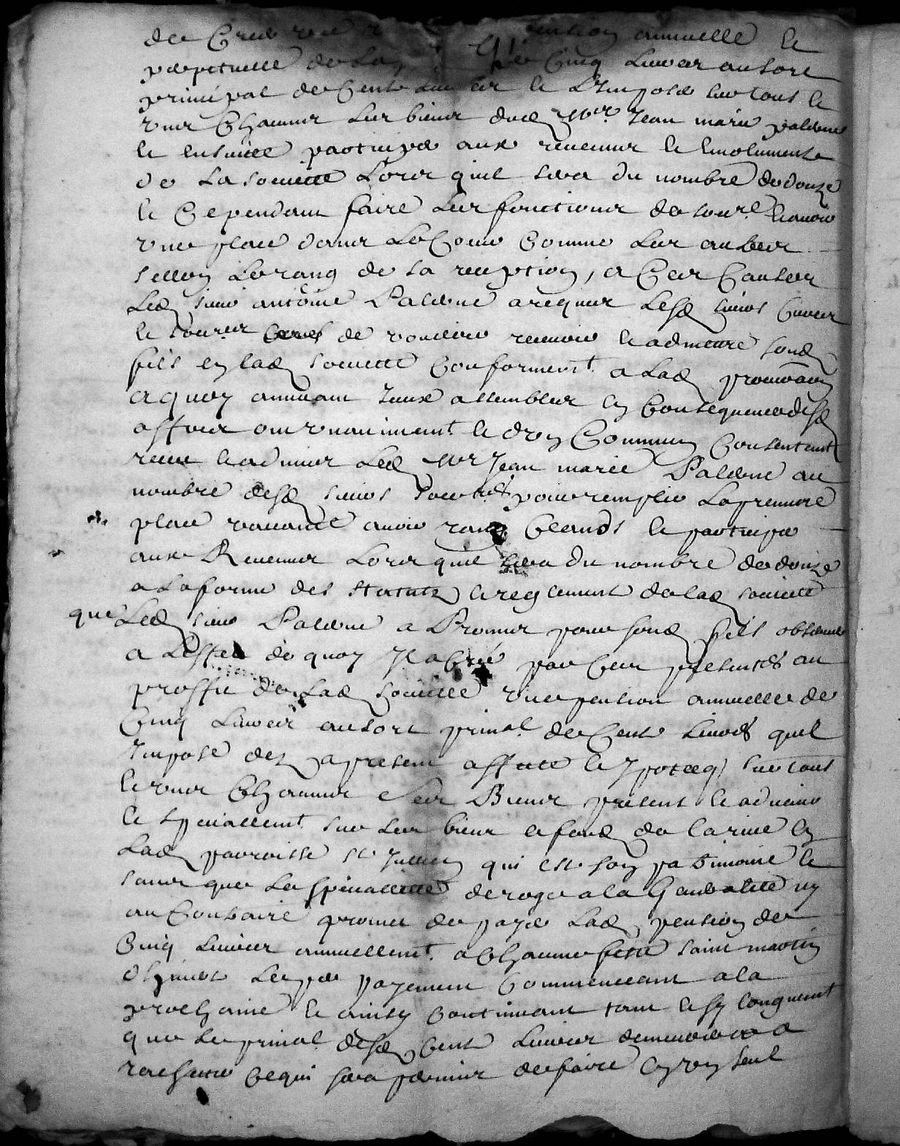 de pension annuelle et
perpetuelle de la de Cinq Livres au sort
principal de Cent Livres et L'Impose sur tous et
vns Chacuns ses biens dud Mre Jean marie paldene
et ensuitte participe aux revenus et Emoluments
de La societté Lors quil sera du nombre de douze
et Cependant faire ses fonctions de et avoir
vne place dans Le Coeur Comme les autres
sellon Le rang de sa reception, a Ces Causes
Led sieur antoine Paldene a requis Lesd sieurs Curés
et de vouloir recevoir et admettre sond
fils en lad societté Conforment a Lad
a quoy annuant Iceux assembles en Consequence desd
affere ont vnaniment et d'vn Commun Consentent
receu et admis Led Mre Jean marie Paldene au
nombre desd sieurs pour remplir La premiere
place vacante avoir rang et participe
aux Revenus Lors quil sera du nombre de douze
a la forme des statuts et reglement de lad societté
que Led sieur Paldene a Promis pour sond fils observer
a L'effet de quoy Il a Créé par Ces presentes au
proffit de Lad societté vne pension annuelle de
Cinq Livres au sort prinal de Cent Livres quil
Impose dez a present affecte et Ipoteq sur tous
et vns Chacuns ses Biens present et advenir
et speciallemt sur ses biens et fond de la rive en
Lad parroisse st Jullien qui est son patrimoine et
sans que La speciallitté deroge a la Generalitté ny
au Contraire promet de payer Lad pension de
Cinq Livres annuellemt a Chacune feste saint martin
d'hiver Le pr payement Commenceant a la
prochaine et ainsy Continuant tant et sy longuemt
que Le prinal desd Cent Livres demeurera a
rachepter Ce qui sera permis de faire en vn seul